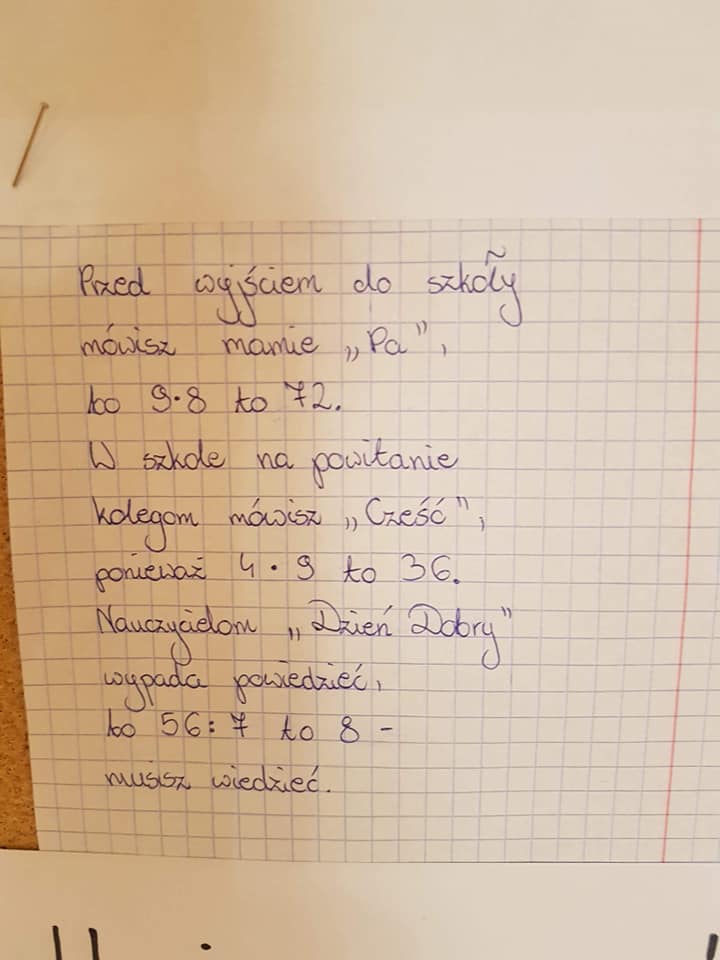 Przed wyjściem do szkoły
mówisz mamie „Pa”,
bo 9·8 to 72.
W szkole na powitanie
kolegom mówisz „Cześć”,
ponieważ 4·9 to 36.
Nauczycielom „Dzień Dobry”
wypada powiedzieć,
bo 56:7 to 8 -
musisz wiedzieć.